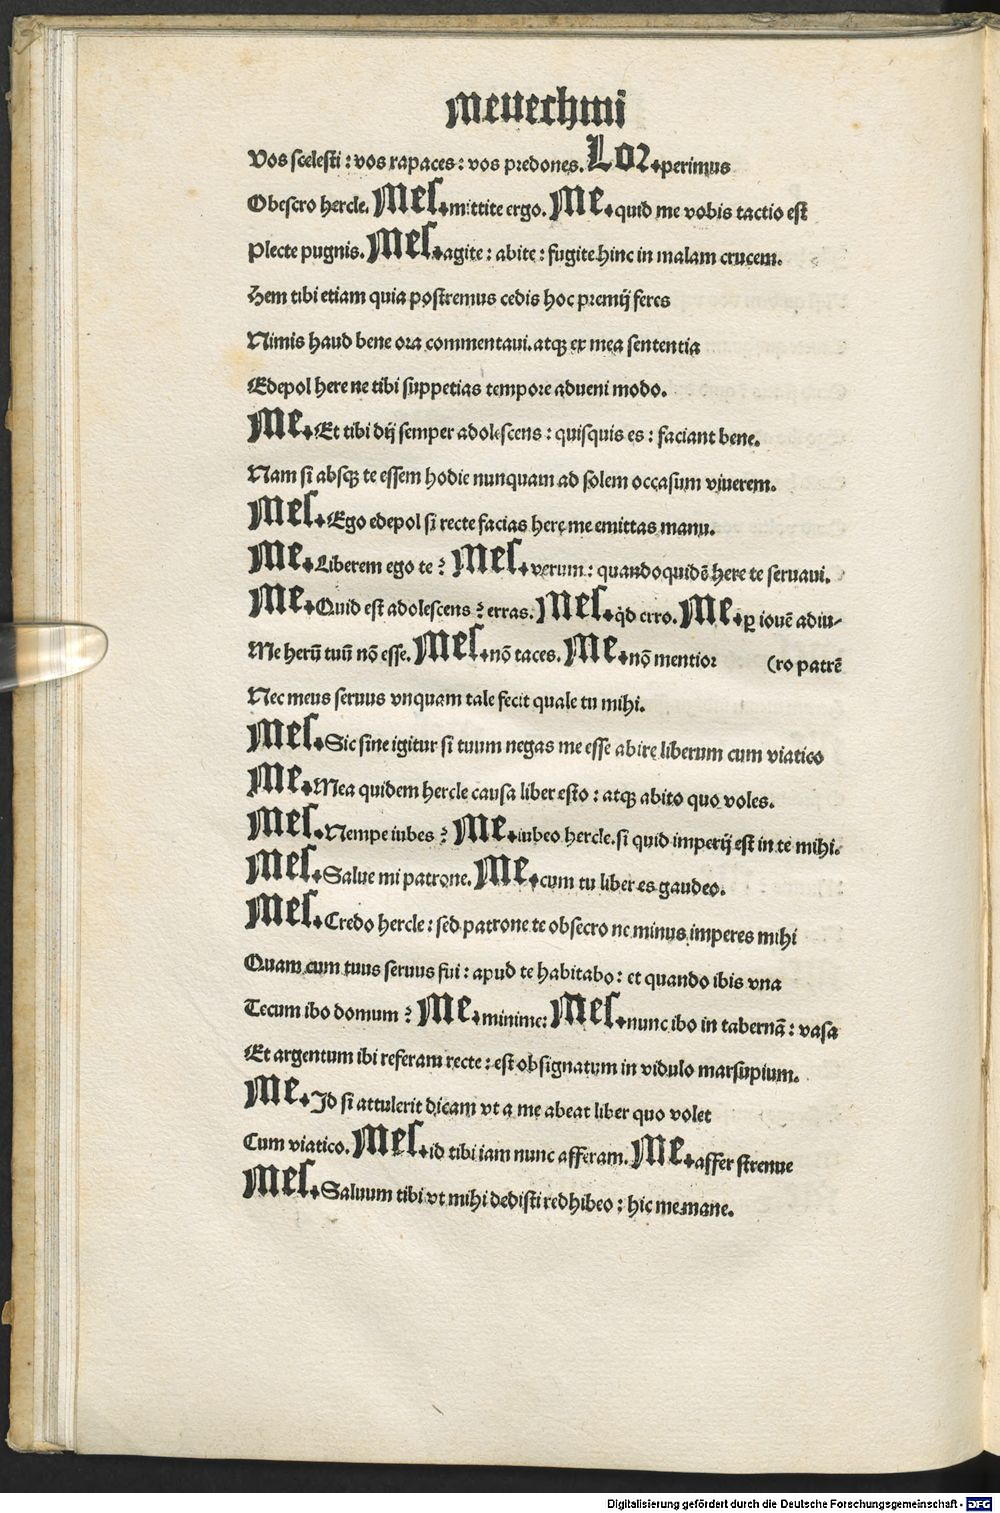 Menechmi
Vos scelesti : vos rapaces : vos predones. Lor. perimus
Obescro hercle. Mes. mittite ergo. Me. quid me vobis tactio est
Plecte pugnis. Mes. agite : abite : fugite hinc in malam crucem.
Hem tibi etiam quia postremus cedis hoc premij feres
Nimis haud bene ora commentaui. atqꝫ ex mea sententia
Edepol here ne tibi suppetias tempore adueni modo.
Me. Et tibi dij semper adolescens : quisquis es : faciant bene.
Nam si absqꝫ te essem hodie nunquam ad solem occasum viuerem.
Mes. Ego edepol si recte facias here me emittas manu.
Me. Liberem ego te ? Mes. verum : quandoquidē here te seruaui.
Me. Quid est adolescens ? erras. Mes. qͥd erro. Me. ꝑ iouē adiu-
Me herū tuū nō esse. Mes. nō taces. Me. nō mentior (ro patrē
Nec meus seruus vnquam tale fecit quale tu mihi.
Mes. Sic sine igitur si tuum negas me esse abire liberum cum viatico
Me. Mea quidem hercle causa liber esto : atqꝫ abito quo voles.
Mes. Nempe iubes ? Me. iubeo hercle. si quid imperij est in te mihi.
Mes. Salue mi patrone. Me. cum tu liber es gaudeo.
Mes. Credo hercle : sed patrone te obsecro ne minus imperes mihi
Quam cum tuus seruus fui : apud te habitabo : et quando ibis vna
Tecum ibo domum ? Me. minime: Mes. nunc ibo in tabernā : vasa
Et argentum ibi referam recte : est obsignatum in vidulo marsupium.
Me. Id si attulerit dicam vt a me abeat liber quo volet
Cum viatico. Mes. id tibi iam nunc afferam. Me. affer strenue
Mes. Saluum tibi vt mihi dedisti redhibeo : hic me mane.
Digitalisierung gefördert durch die Deutsche Forschungsgemeinschaft - DFG